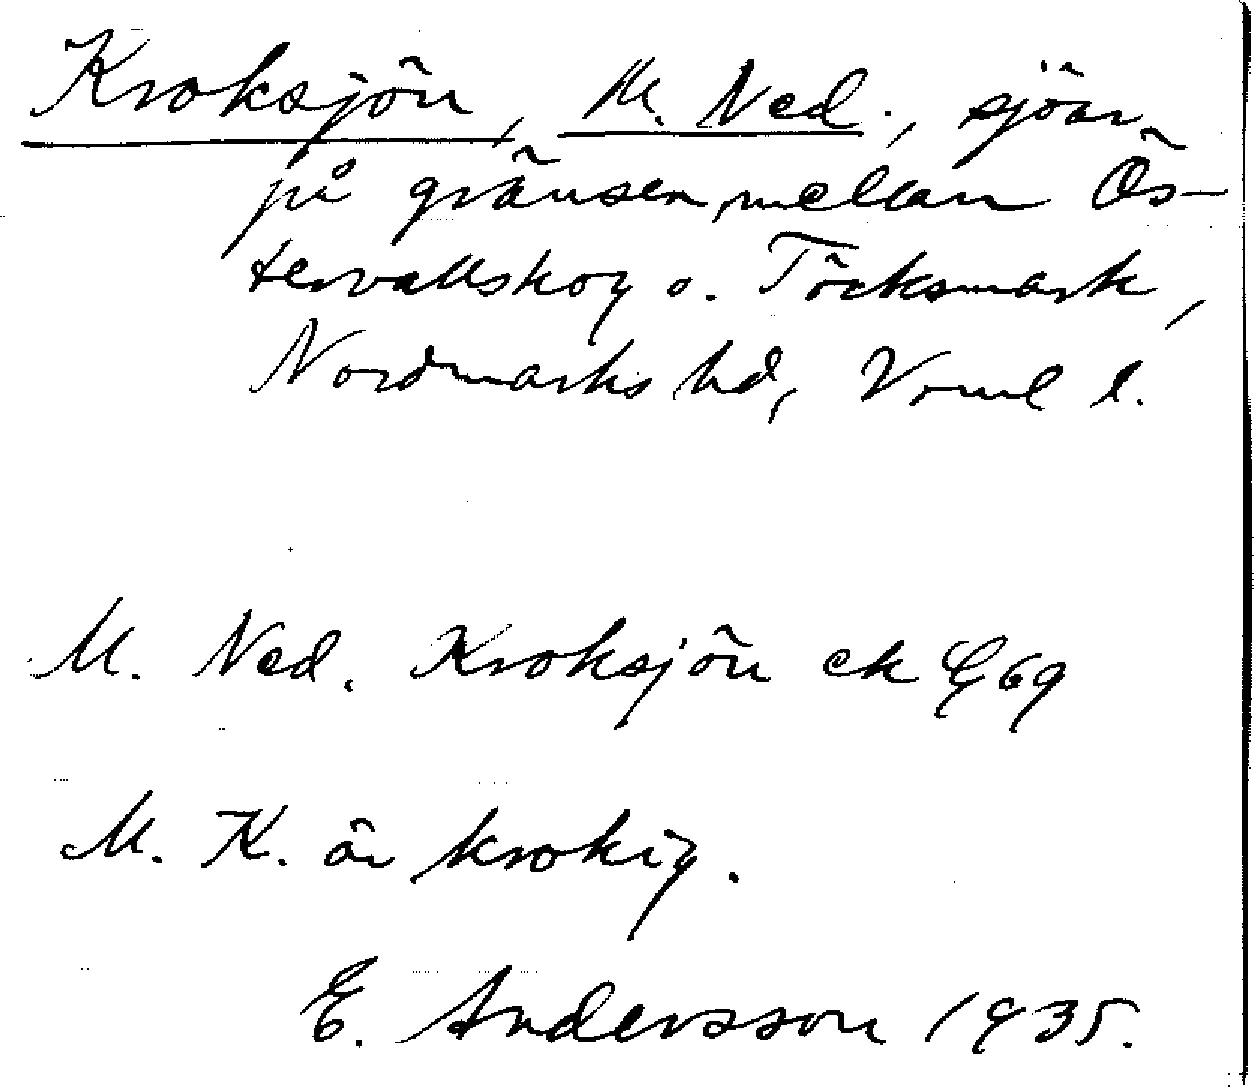 Kroksjön, M. Ned., sjöar
på gränsen mellan Ös-
tervallskog o. Töcksmark,
Nordmarks hd, Vrml l.
M. Ned. Kroksjön ek 69
M. K. är krokig.
E. Andersson 1935.